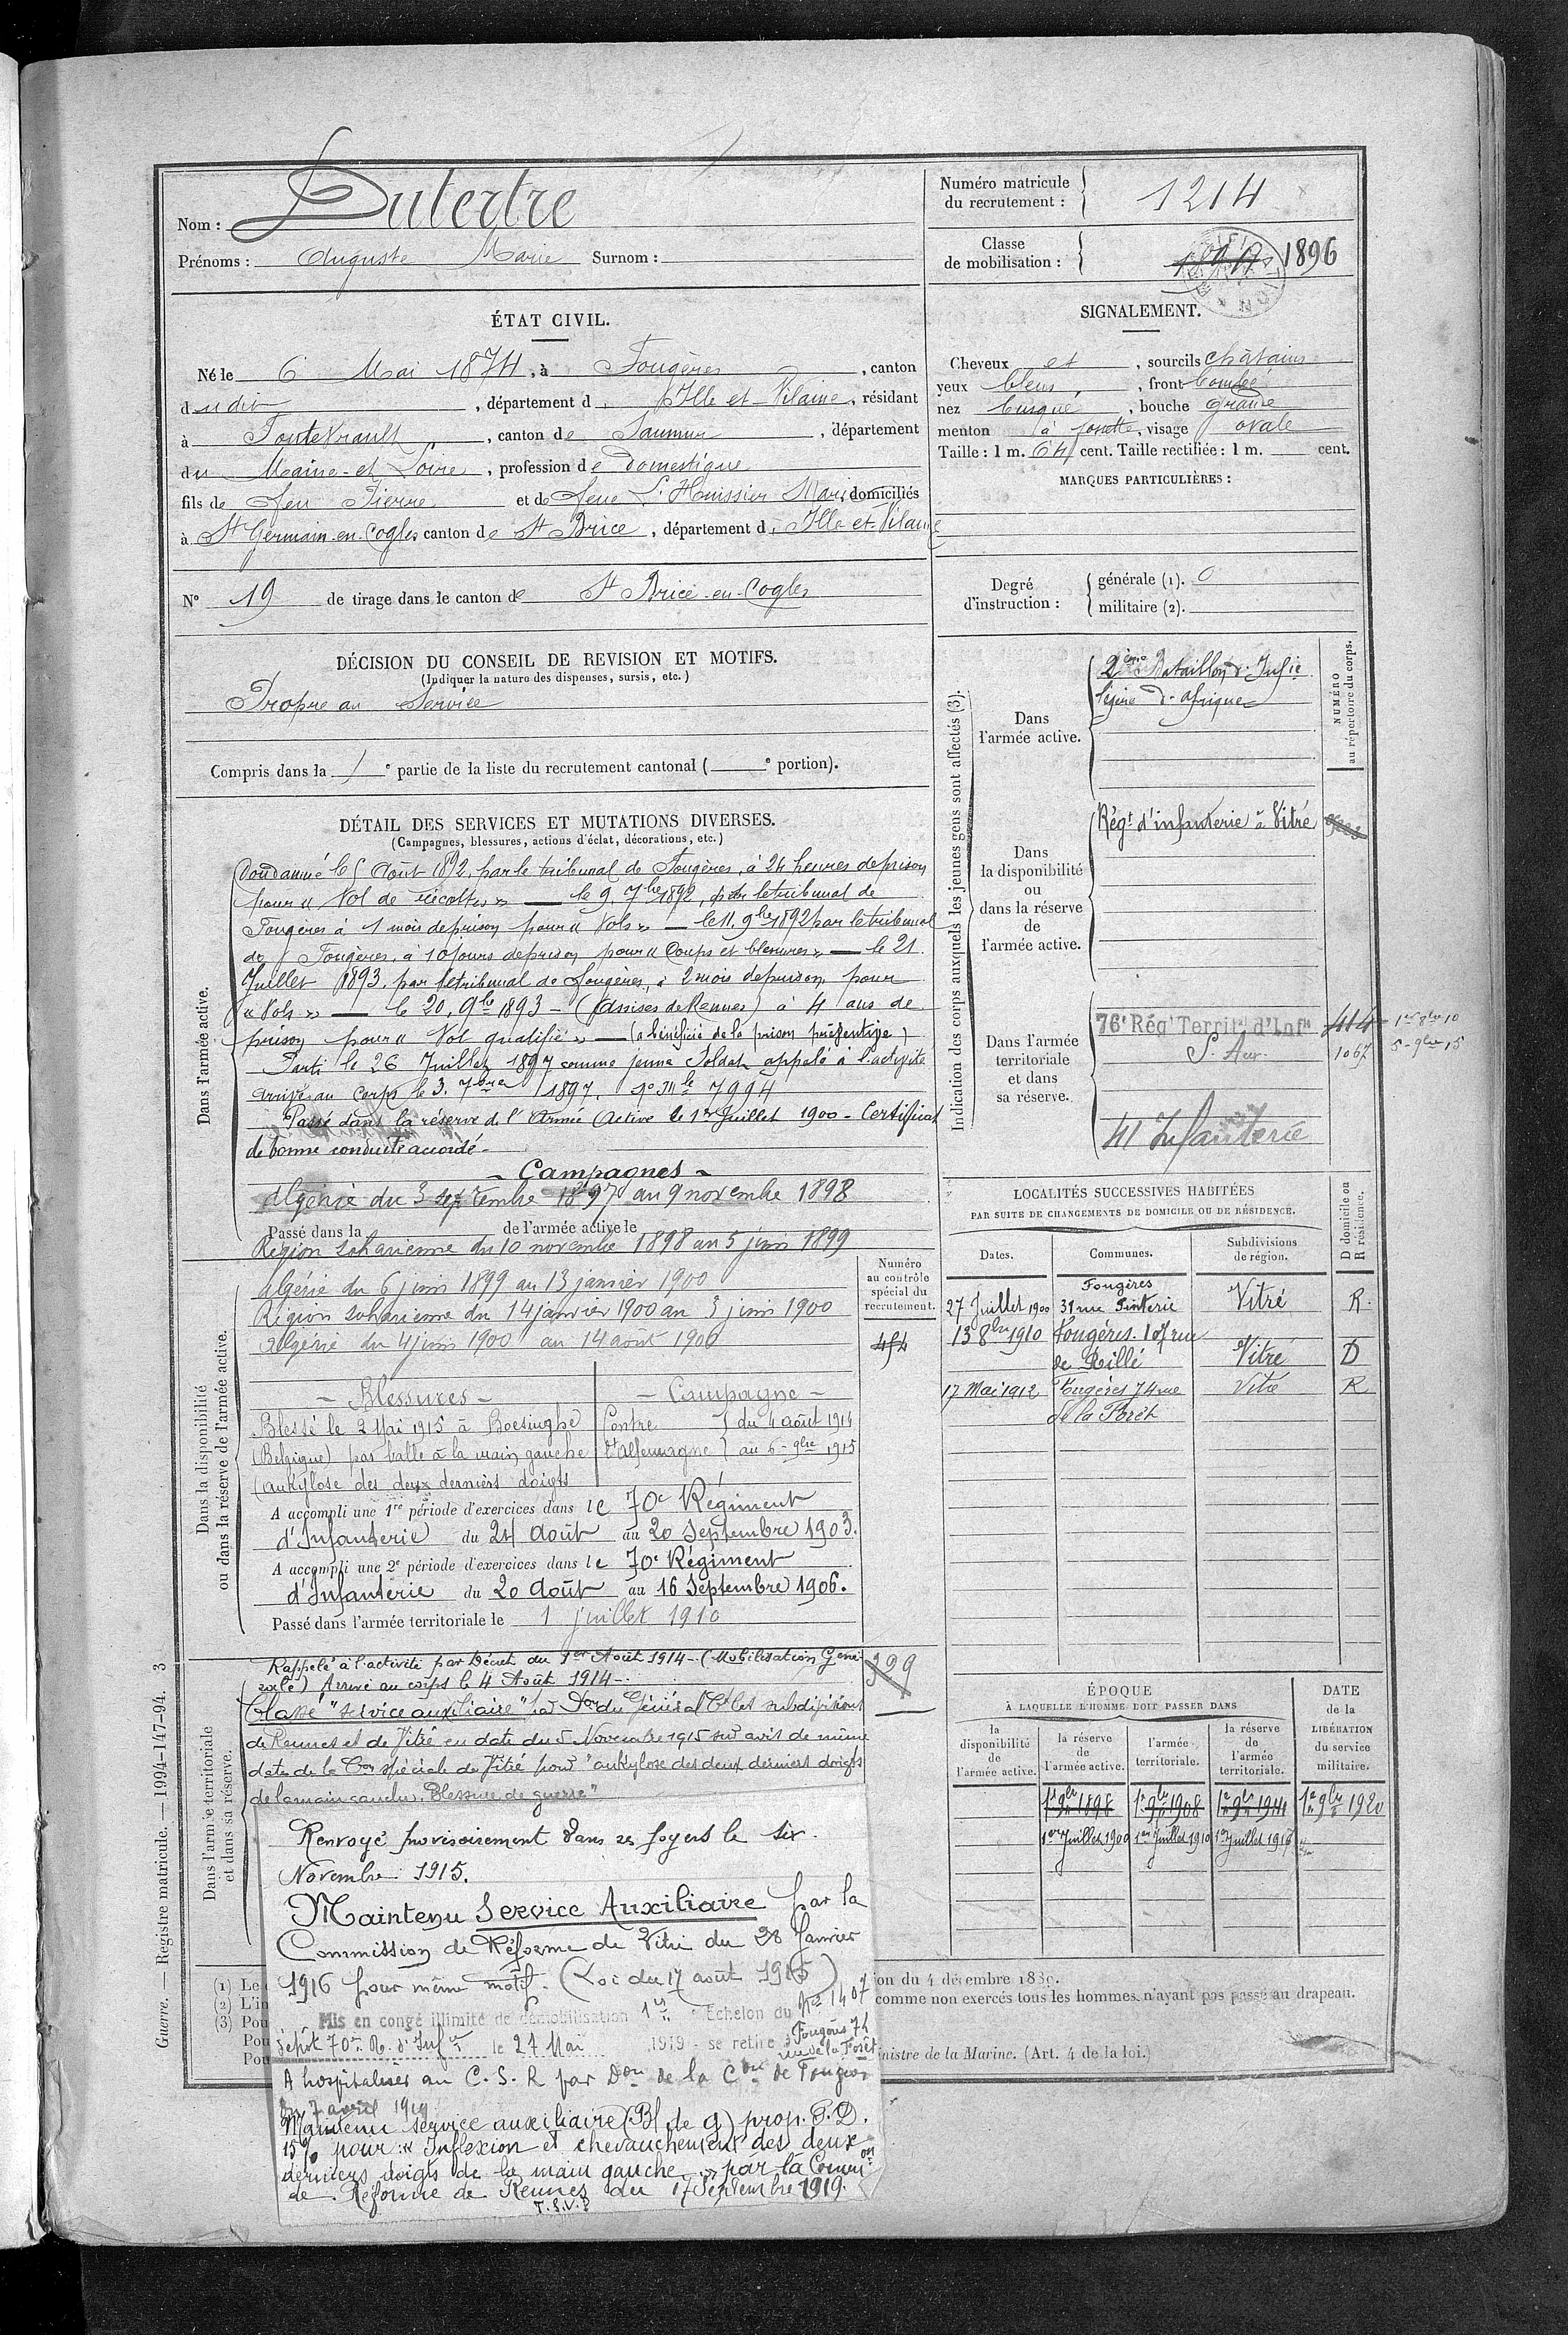 Nom : Dutertre
Prénoms : Auguste Marie Surnom :
Numéro matricule
du recrutement : 1214
Classe
de mobilisation : 1896
ÉTAT CIVIL.
Né le 6 Mai 1874, à Fougères, canton
dudit, département d Ille et Vilaine, résidant
à Fontevrault, canton de Saumur, département
du Maine-et-Loire, profession de domestique
fils de feu Pierre et de feue L'Huissier Marie domiciliés
à St Germain-en-Cogles canton de St Brice, département d Ille-et-Vilaine
N° 19 de tirage dans le canton de St Brice-en-Cogles
SIGNALEMENT.
Cheveux et, sourcils châtains
yeux bleus, front bombé
nez busqué, bouche grande
menton à fossette, visage ovale
Taille : 1 m. 64 cent. Taille rectifiée : 1 m. cent.
MARQUES PARTICULIÈRES :
Degré
d'instruction :
générale (1). 0
militaire (2).
DÉCISION DU CONSEIL DE REVISION ET MOTIFS.
(Indiquer la nature des dispenses, sursis, etc.)
Propre au Service
Compris dans la 1e partie de la liste du recrutement cantonal ( e portion).
DÉTAIL DES SERVICES ET MUTATIONS DIVERSES.
(Campagnes, blessures, actions d'éclat, décorations, etc.)
Dans l'armée active.
Condamné le 5 Août 1892, par le tribunal de Fougères, à 24 heures de prison
pour « Vol de récoltes » — le 9. 7bre 1892, par le tribunal de
Fougères à 1 mois de prison pour « Vols » — le 11. 9bre 1892 par le tribunal
de Fougères, à 10 jours de prison pour « Coups et blessures » — le 21
Juillet 1893, par le tribunal de Fougères, à 2 mois de prison, pour
« Vols » — le 20. 9bre 1893 - (Assises de Rennes) à 4 ans de
prison pour « Vol qualifié » — (a bénéficié de la prison préventive)
Parti le 26 Juillet 1897 comme jeune Soldat appelé à l'activité
arrivé au Corps le 3. 7bre 1897. No Mle 7994
Passé dans la réserve de l'Armée Active le 1er Juillet 1900 - Certificat
de bonne conduite accordé -
- Campagnes -
Algérie du 3 septembre 1897 au 9 novembre 1898
Passé dans la de l'armée active le
Région saharienne du 10 novembre 1898 au 5 juin 1899
Dans la disponibilité
ou dans la réserve de l'armée active.
Algérie du 6 juin 1899 au 13 janvier 1900
Région saharienne du 14 janvier 1900 au 3 juin 1900
Algérie du 4 juin 1900 au 14 août 1900
Numéro
au contrôle
spécial du
recrutement.
454
- Blessures - - Campagne -
Blessé le 2 Mai 1915 à Boesinghe Contre du 4 août 1914
(Belgique) par balle à la main gauche l'Allemagne au 6-9bre 1915
(ankylose des deux derniers doigts
A accompli une 1re période d'exercices dans le 70e Régiment
d'Infanterie du 24 Août au 20 Septembre 1903.
A accompli une 2e période d'exercices dans le 70e Régiment
d'Infanterie du 20 Août au 16 Septembre 1906.
Passé dans l'armée territoriale le 1 juillet 1910
Dans l'armée territoriale
et dans sa réserve.
Rappelé à l'activité par Décret du 1er Août 1914 - (Mobilisation Géné-
rale) Arrivé au corps le 4 Août 1914 -
399
Classé "service auxiliaire" par Don du Général Ct les subdivisions
de Rennes et de Vitré en date du 5 Novembre 1915 sur avis de même
date de la Con spéciale de Vitré pour "ankylose des deux derniers doigts
de la main gauche. Blessure de guerre"
Renvoyé provisoirement dans ses foyers le six
Novembre 1915.
Maintenu Service Auxiliaire par la
Commission de Réforme de Vitré du 28 Janvier
1916 pour même motif. (Loi du 17 août 1915)
Mis en congé illimité de démobilisation 1er Echelon du No 1407
dépôt 70e R. d'Infie le 27 Mai 1919 - se retire Fougères 74
rue de la Forêt
A hospitaliser au C. S. R par Don de la Con de Fougères
du 7 avril 1919
Maintenu service auxiliaire (Bl de g) prop. P.D.
15% pour : « Inflexion et chevauchement des deux
derniers doigts de la main gauche » par la Common
de Réforme de Rennes du 17 Septembre 1919.
T.S.V.P
Indication des corps auxquels les jeunes gens sont affectés (3).
NUMÉRO
au répertoire du corps.
Dans
l'armée active.
2ème Bataillon d'Infie
légère d'Afrique
Dans
la disponibilité
ou
dans la réserve
de
l'armée active.
Régt d'infanterie à Vitré
Dans l'armée
territoriale
et dans
sa réserve.
76e Rég Territl d'Infie 414 1er 8bre 10
S. Aux. 1067 5-9bre 15
41 Infanterie
LOCALITÉS SUCCESSIVES HABITÉES
PAR SUITE DE CHANGEMENTS DE DOMICILE OU DE RÉSIDENCE.
D domicile ou
R résidence.
Dates. Communes. Subdivisions
de région.
Fougères
27 Juillet 1900 31 rue Pinterie Vitré R.
13 8bre 1910 Fougères. 107 rue
de Rillé Vitré D
17 Mai 1912 Fougères 74 rue Vitré R
de la Forêt
ÉPOQUE
À LAQUELLE L'HOMME DOIT PASSER DANS
la
disponibilité
de
l'armée active.
la réserve
de
l'armée active.
l'armée
territoriale.
la réserve
de
l'armée
territoriale.
DATE
de la
LIBÉRATION
du service
militaire.
1er 9bre 1898 1er 9bre 1908 1er 9bre 1914 1er 9bre 1920
1er Juillet 1900 1er Juillet 1910 1er Juillet 1916
(1) Le
(2) L'in
(3) Pou
Pou
Pou
ion du 4 décembre 1889.
comme non exercés tous les hommes n'ayant pas passé au drapeau.
nistre de la Marine. (Art. 4 de la loi.)
Guerre. — Registre matricule. — 1994-147-94. 3